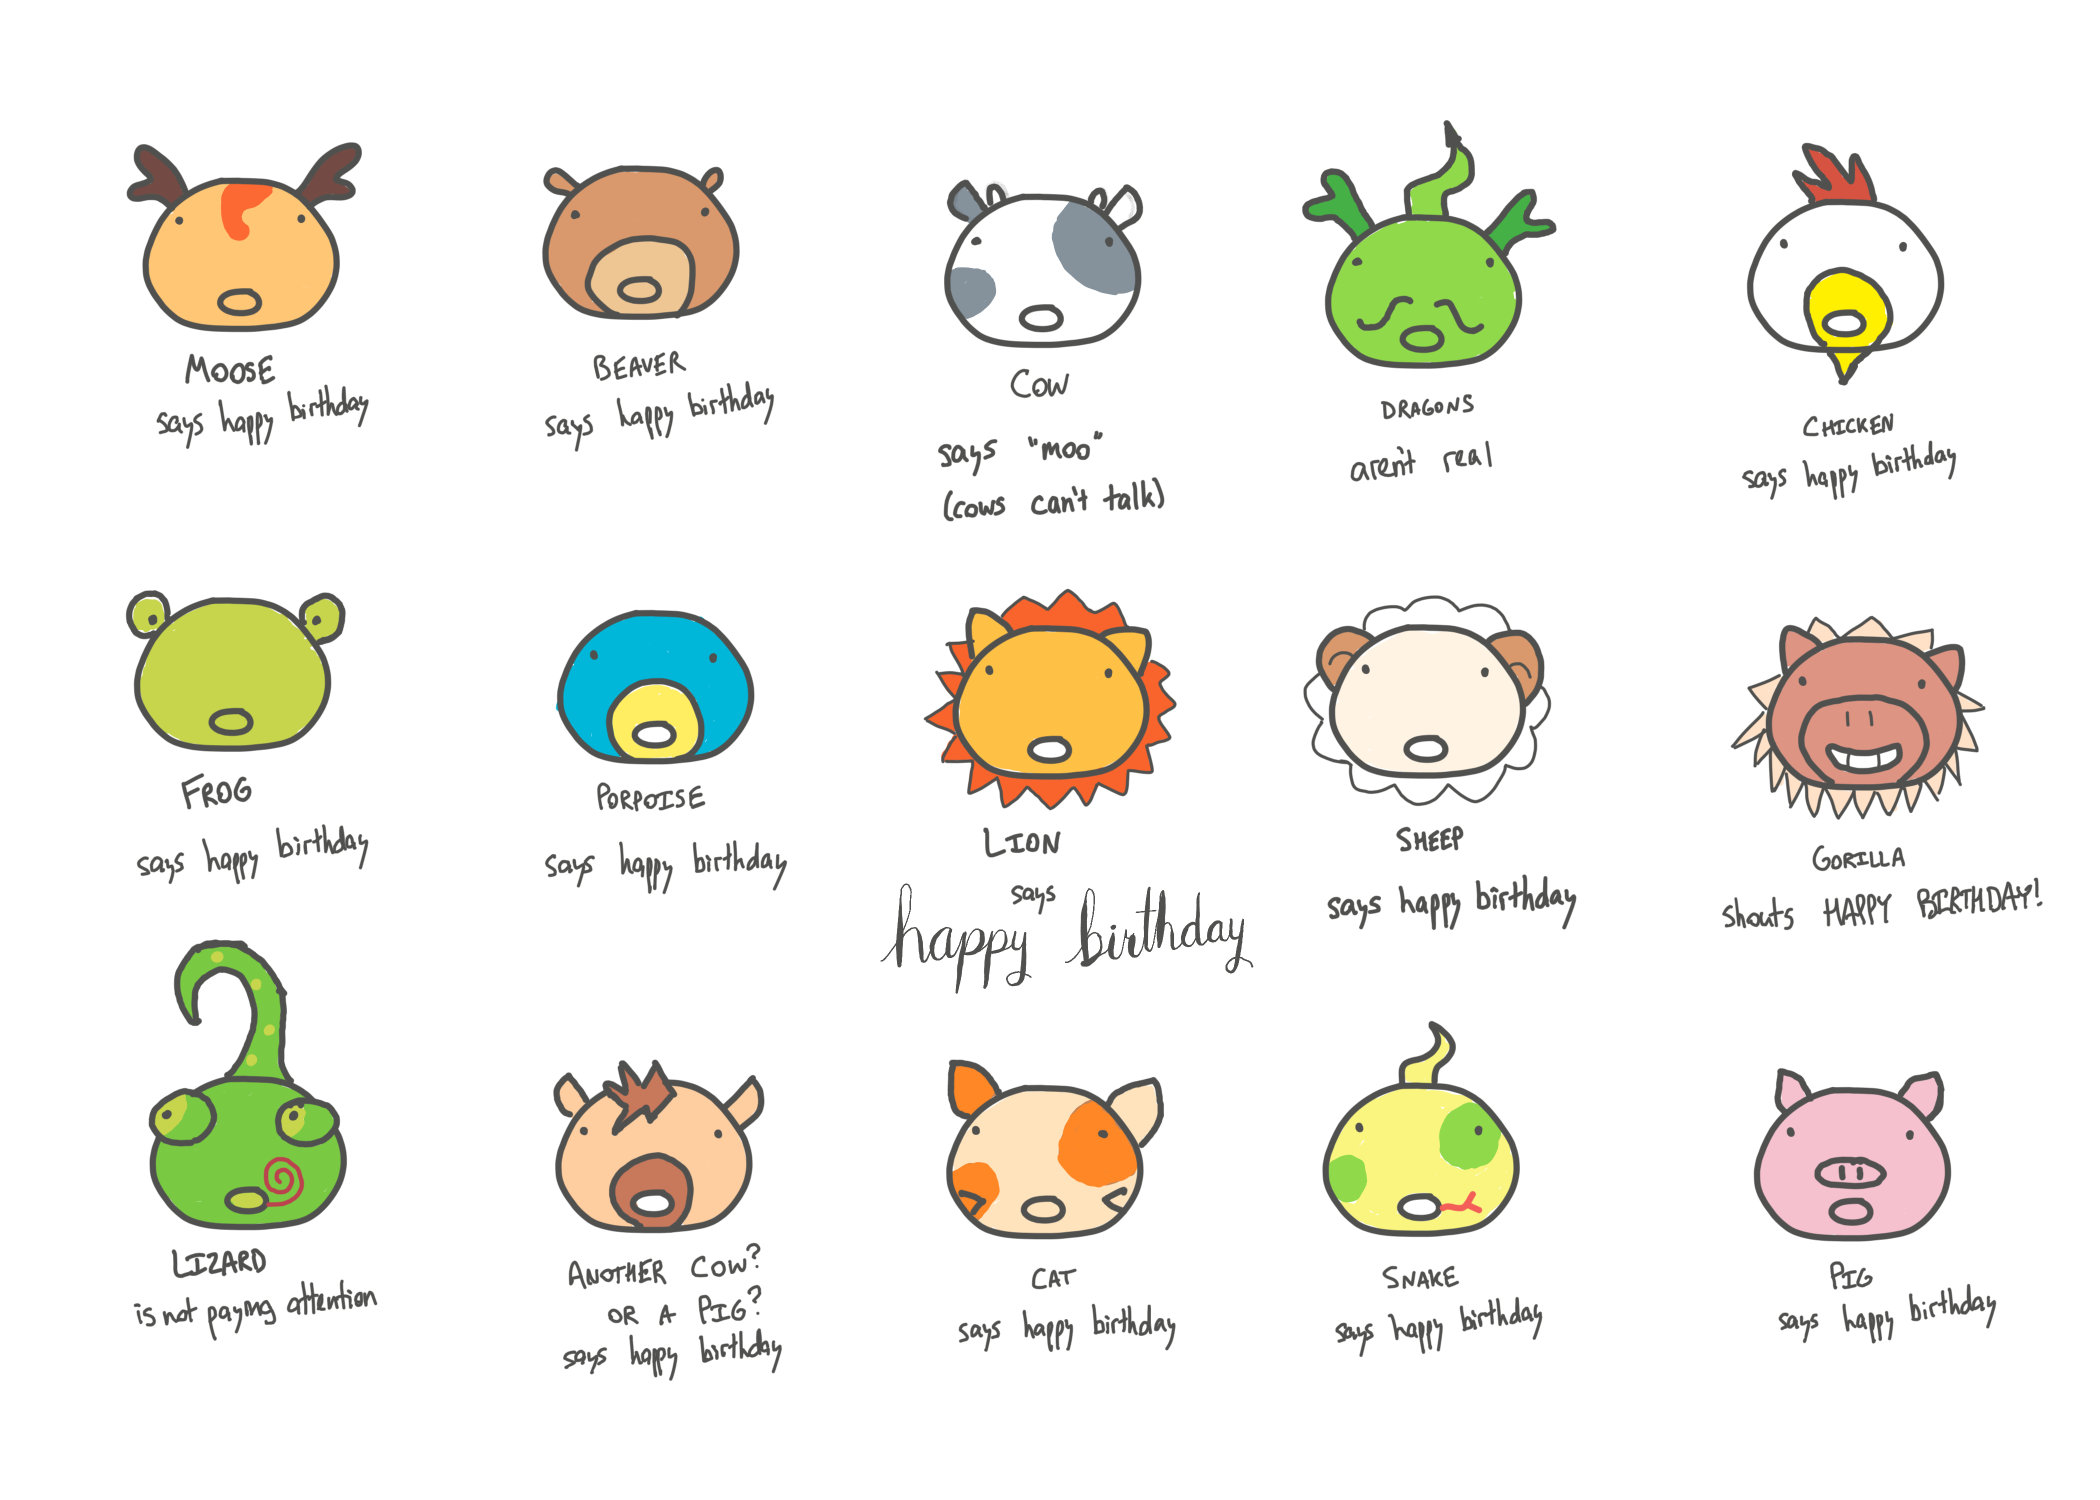 MOOSE
says happy birthday
BEAVER
says happy birthday
COW
says "moo"
(cows can't talk)
DRAGONS
aren't real
CHICKEN
says happy birthday
FROG
says happy birthday
PORPOISE
says happy birthday
LION
says
happy birthday
SHEEP
says happy birthday
GORILLA
shouts HAPPY BIRTHDAY!
LIZARD
is not paying attention
ANOTHER COW?
OR A PIG?
says happy birthday
CAT
says happy birthday
SNAKE
says happy birthday
PIG
says happy birthday